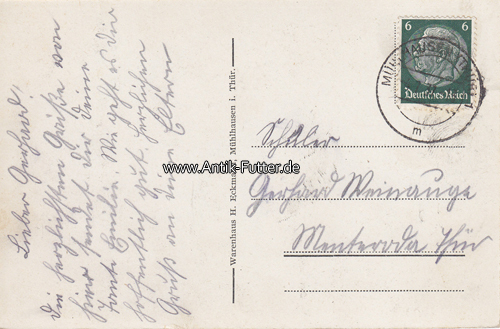 Lieber Gerhard!
Die herzlichsten Grüße von
hier sendet dir deine
Tante Emilie. Wie geht es dir
hoffentlich gut. Herzlichen
Gruß an deine Eltern
Warenhaus H. Eckmann, Mühlhausen i. Thür.
www.Antik-Futter.de
6 6
Deutsches Reich
MÜHLHAUSEN (THÜR)
m
Schüler
Gerhard Weinauge
Menteroda Thür